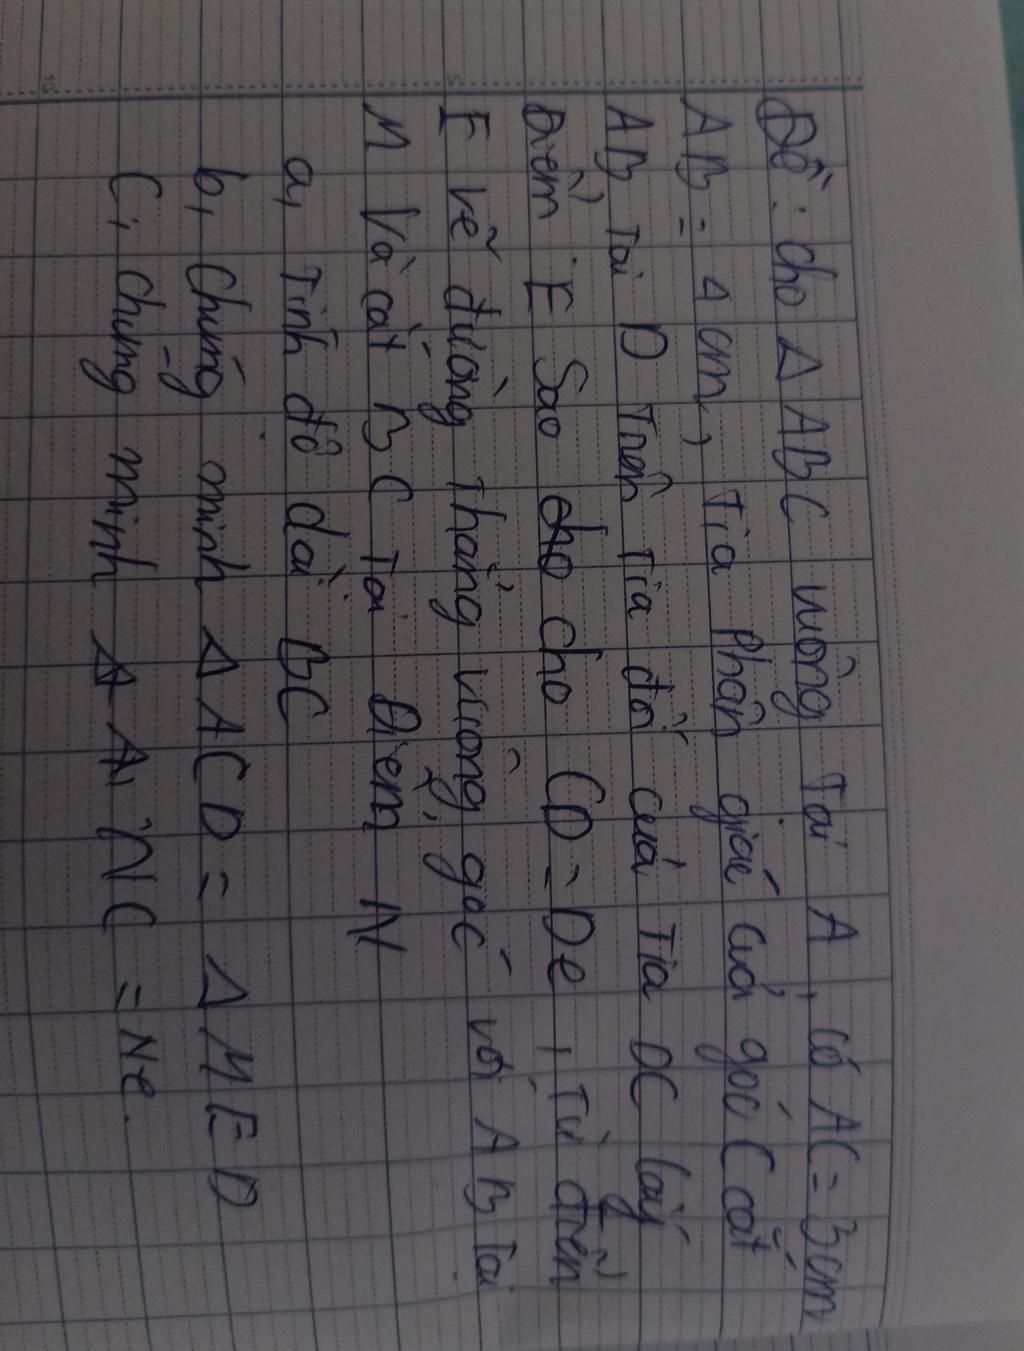 Đề: cho Δ ABC vuông Tại A, có AC = 3cm
AB = 4 cm, Tia Phân giác của góc C cắt
AB Tại D Trên Tia đối của Tia DC lấy
Điểm E Sao cho cho CD = De, Từ điểm
E vẽ đường Thẳng vuông góc với AB Tại
M Và cắt BC Tại Điểm N
a, Tính độ dài BC
b, Chứng minh Δ ACD = Δ MED
C, Chứng minh Δ A, NC = Ne.
5
10